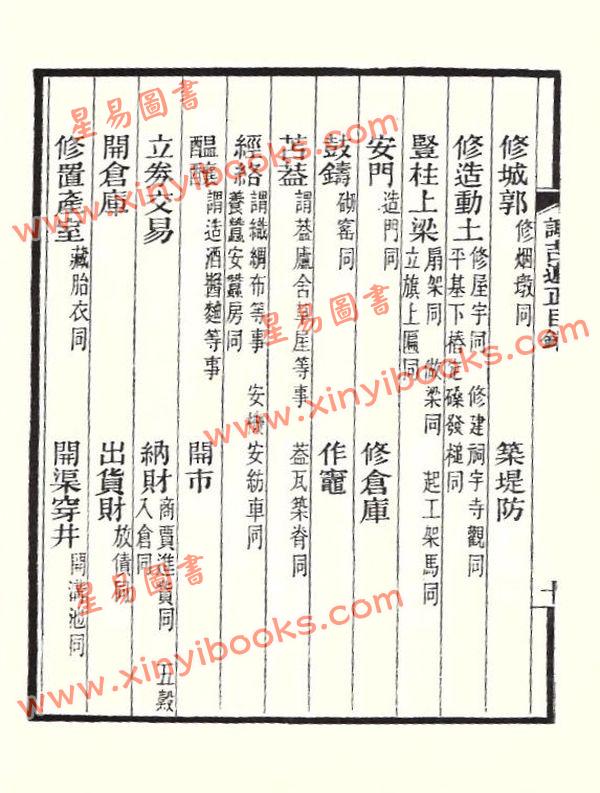 諏吉述正目錄
十
修城郭 修烟墩同 築堤防
修造動土 修屋宇同 修建祠宇寺觀同
平基下樁定磉發槌同
豎柱上梁 扇架同 做梁同 起工架馬同
立旗上匾同
安門 造門同 修倉庫
鼓鑄 砌窰同 作竈
苫葢 謂葢廬舍草屋等事 葢瓦築脊同
經絡 謂織綢布等事 安機安紡車同
養蠶安蠶房同
醞釀 謂造酒醬麯等事 開市
立券交易 納財 商賈進貨同 五穀
入倉同
開倉庫 出貨財 放債同
修置產室 藏胎衣同 開渠穿井 開溝池同
星易圖書
www.xinyibooks.com
星易圖書
www.xinyibooks.com
星易圖書
www.xinyibooks.com